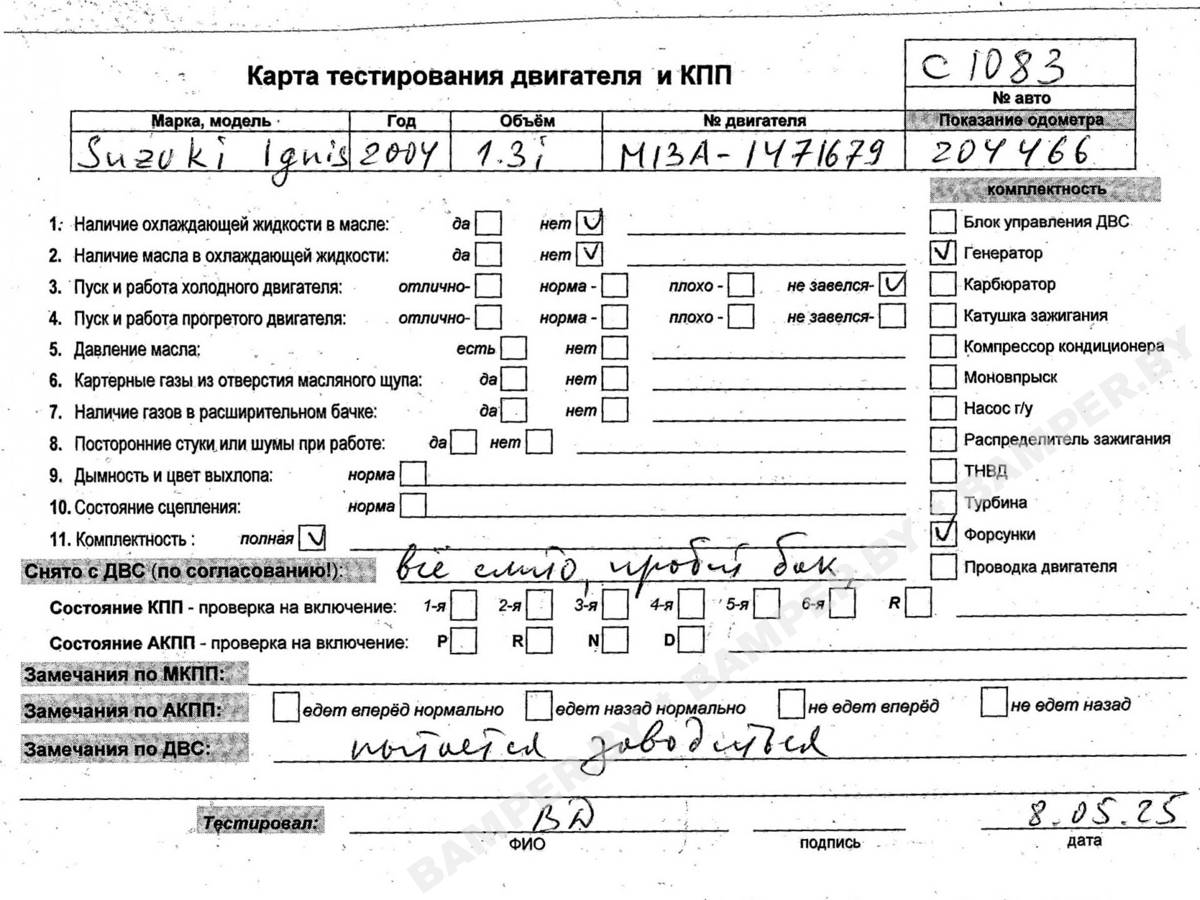 Карта тестирования двигателя и КПП
C 1083
№ авто
Марка, модель Год Объём № двигателя Показание одометра
Suzuki Ignis 2004 1.3i M13A-1471679 204466
комплектность
1. Наличие охлаждающей жидкости в масле: да нет ✓
Блок управления ДВС
2. Наличие масла в охлаждающей жидкости: да нет ✓
✓ Генератор
3. Пуск и работа холодного двигателя: отлично- норма - плохо - не завелся- ✓
Карбюратор
4. Пуск и работа прогретого двигателя: отлично- норма - плохо - не завелся-
Катушка зажигания
5. Давление масла: есть нет
Компрессор кондиционера
6. Картерные газы из отверстия масляного щупа: да нет
Моновпрыск
7. Наличие газов в расширительном бачке: да нет
Насос г/у
8. Посторонние стуки или шумы при работе: да нет
Распределитель зажигания
9. Дымность и цвет выхлопа: норма
ТНВД
10. Состояние сцепления: норма
Турбина
11. Комплектность : полная ✓
✓ Форсунки
Снято с ДВС (по согласованию!): всё слито, пробит бак,
Проводка двигателя
Состояние КПП - проверка на включение: 1-я 2-я 3-я 4-я 5-я 6-я R
Состояние АКПП - проверка на включение: P R N D
Замечания по МКПП:
Замечания по АКПП: едет вперёд нормально едет назад нормально не едет вперёд не едет назад
Замечания по ДВС: пытается заводиться
Тестировал: ВД 8.05.25
ФИО подпись дата
BAMPER.BY * BAMPER.BY * BAMPER.BY * BAMPER.BY